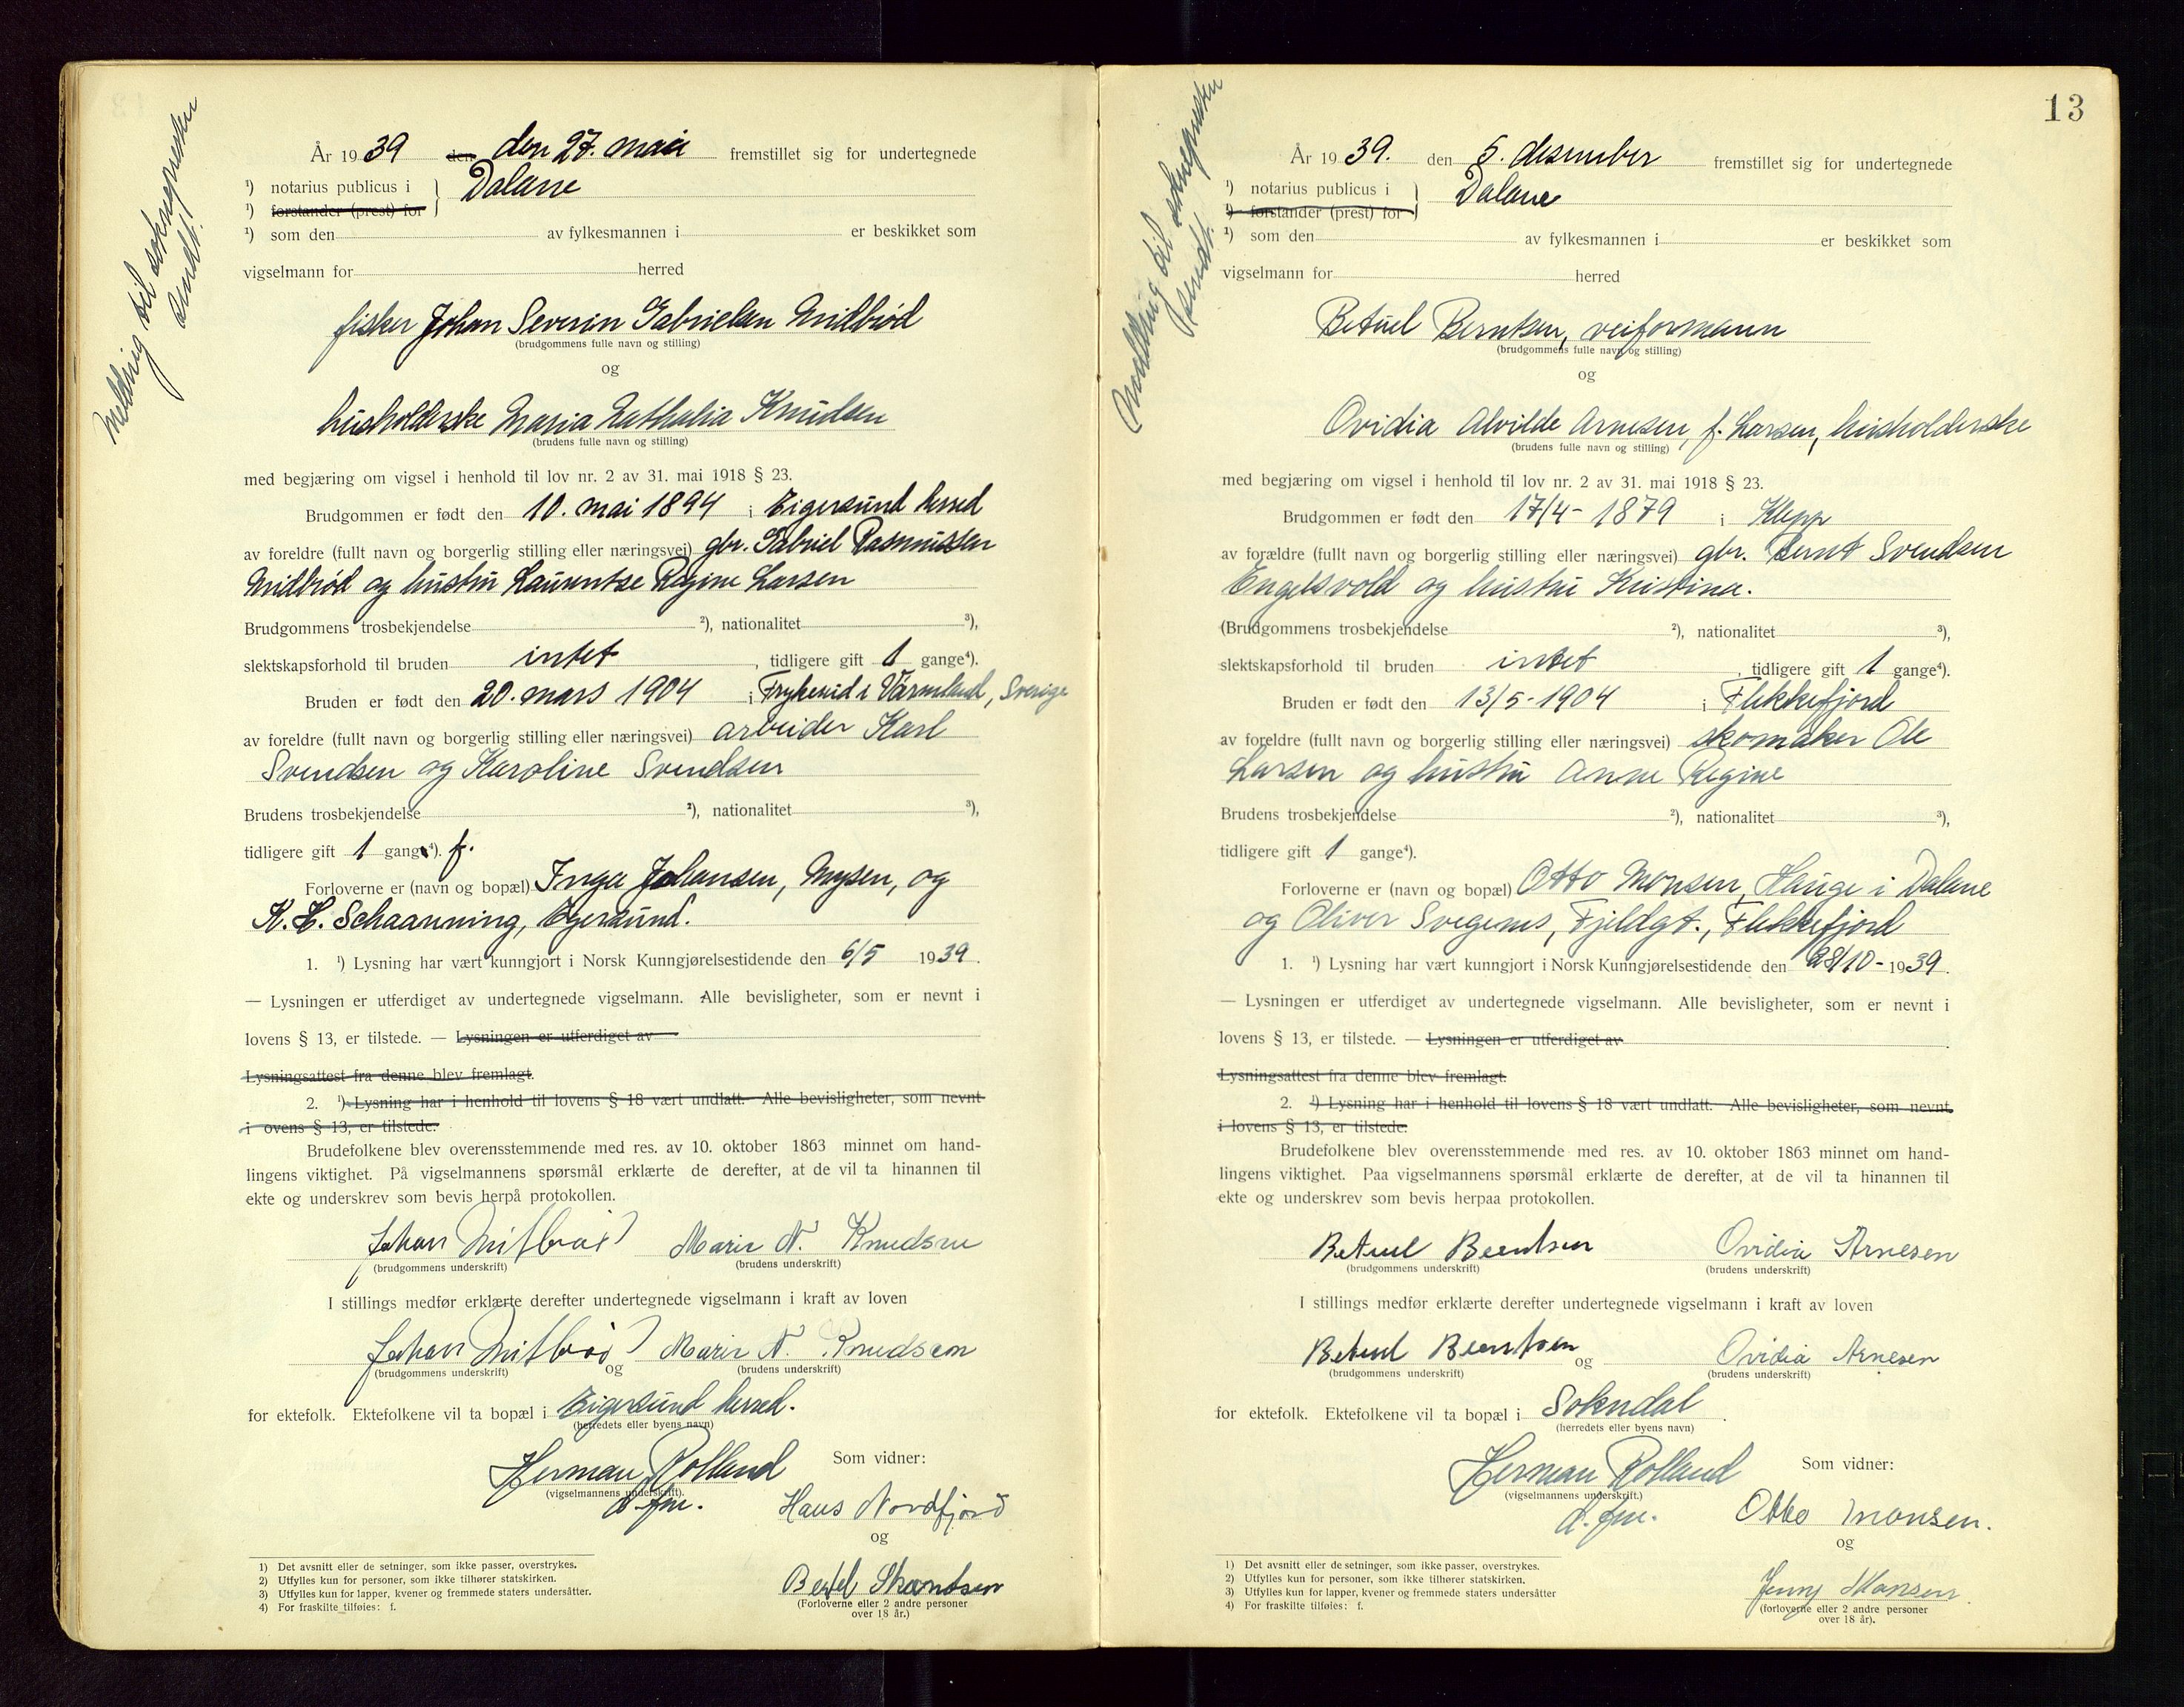 Melding til soknepresten
sendt.
År 1939 den den 27. mai fremstillet sig for undertegnede
¹) notarius publicus i } Dalane
¹) forstander (prest) for
¹) som den av fylkesmannen i er beskikket som
vigselmann for herred
fisker Johan Severin Gabrielsen Midbrød
(brudgommens fulle navn og stilling)
og
husholderske Maria Nathalia Knudsen
(brudens fulle navn og stilling)
med begjæring om vigsel i henhold til lov nr. 2 av 31. mai 1918 § 23.
Brudgommen er født den 10. mai 1894 i Eigersund herred
av foreldre (fullt navn og borgerlig stilling eller næringsvei) gbr. Gabriel Rasmussen
Midbrød og hustru Lauentse Regine Larsen
Brudgommens trosbekjendelse ²), nationalitet ³),
slektskapsforhold til bruden intet , tidligere gift 1 gange⁴).
Bruden er født den 20. mars 1904 i Frykerud i Värmland, Sverige
av foreldre (fullt navn og borgerlig stilling eller næringsvei) arbeider Karl
Svendsen og Karoline Svendsen
Brudens trosbekjendelse ²), nationalitet ³),
tidligere gift 1 gang⁴). f.
Forloverne er (navn og bopæl) Inga Johansen, Mysen, og
K. H. Schaanning, Egersund.
1. ¹) Lysning har vært kunngjort i Norsk Kunngjørelsestidende den 6/5 1939.
— Lysningen er utferdiget av undertegnede vigselmann. Alle bevisligheter, som er nevnt i
lovens § 13, er tilstede. — Lysningen er utferdiget av
Lysningsattest fra denne blev fremlagt.
2. ¹) Lysning har i henhold til lovens § 18 vært undlatt. Alle bevisligheter, som nevnt
i ovens § 13, er tilstede.
Brudefolkene blev overensstemmende med res. av 10. oktober 1863 minnet om hand-
lingens viktighet. På vigselmannens spørsmål erklærte de derefter, at de vil ta hinannen til
ekte og underskrev som bevis herpå protokollen.
Johan Mitbrød Marie N. Knudsen
(brudgommens underskrift) (brudens underskrift)
I stillings medfør erklærte derefter undertegnede vigselmann i kraft av loven
Johan Mitbrød og Marie N. Knudsen
(brudgommens underskrift) (brudens underskrift)
for ektefolk. Ektefolkene vil ta bopæl i Eigersund herred.
(herredets eller byens navn)
Herman Rolland Som vidner:
(vigselmannens underskrift).
d. fm. Hans Nordfjord
og
Bertel Skontsen
(Forloverne eller 2 andre personer
over 18 år.)
1) Det avsnitt eller de setninger, som ikke passer, overstrykes.
2) Utfylles kun for personer, som ikke tilhører statskirken.
3) Utfylles kun for lapper, kvener og fremmede staters undersåtter.
4) For fraskilte tilføies: f.
13
Melding til soknepresten
sendt.
År 1939. den 5. desember fremstillet sig for undertegnede
¹) notarius publicus i } Dalane
¹) forstander (prest) for
¹) som den av fylkesmannen i er beskikket som
vigselmann for herred
Betuel Berntsen, veiformann
(brudgommens fulle navn og stilling)
og
Ovidia Alvilde Arnesen, f. Larsen, husholderske
(brudens fulle navn og stilling)
med begjæring om vigsel i henhold til lov nr. 2 av 31. mai 1918 § 23.
Brudgommen er født den 17/4 - 1879 i Klepp
av forældre (fullt navn og borgerlig stilling eller næringsvei) gbr. Bernt Svendsen
Engelsvold og hustru Kristina.
(Brudgommens trosbekjendelse ²), nationalitet ³),
slektskapsforhold til bruden intet , tidligere gift 1 gange⁴).
Bruden er født den 13/5 - 1904 i Flekkefjord
av foreldre (fullt navn og borgerlig stilling eller næringsvei) skomaker Ole
Larsen og hustru Anne Regine
Brudens trosbekjendelse ²), nationalitet ³),
tidligere gift 1 gange⁴).
Forloverne er (navn og bopæl) Otto Monsen, Hauge i Dalane
og Oliver Svegens, Fjeldgt., Flekkefjord
1. ¹) Lysning har vært kunngjort i Norsk Kunngjørelsestidende den 28/10 - 1939.
— Lysningen er utferdiget av undertegnede vigselmann. Alle bevisligheter, som er nevnt i
lovens § 13, er tilstede. — Lysningen er utferdiget av
Lysningsattest fra denne blev fremlagt.
2. ¹) Lysning har i henhold til lovens § 18 vært undlatt. Alle bevisligheter, som nevnt
i lovens § 13, er tilstede.
Brudefolkene blev overensstemmende med res. av 10. oktober 1863 minnet om hand-
lingens viktighet. Paa vigselmannens spørsmål erklærte de derefter, at de vil ta hinannen til
ekte og underskrev som bevis herpaa protokollen.
Betuel Berntsen Ovidia Arnesen
(brudgommens underskrift) (brudens underskrift)
I stillings medfør erklærte derefter undertegnede vigselmann i kraft av loven
Betuel Berntsen og Ovidia Arnesen
(brudgommens underskrift) (brudens underskrift)
for ektefolk. Ektefolkene vil ta bopæl i Sokndal.
(herredets eller byens navn)
Herman Rolland Som vidner:
(vigselmannens underskrift.)
d. fm. Otto Monsen.
og
Jenny Monsen
(forloverne eller 2 andre personer
over 18 år).
1) Det avsnitt eller de setninger, som ikke passer, overstrykes.
2) Utfylles kun for personer, som ikke tilhører statskirken.
3) Utfylles kun for lapper, kvener og fremmede staters undersåtter
4) For fraskilte tilføies: f.